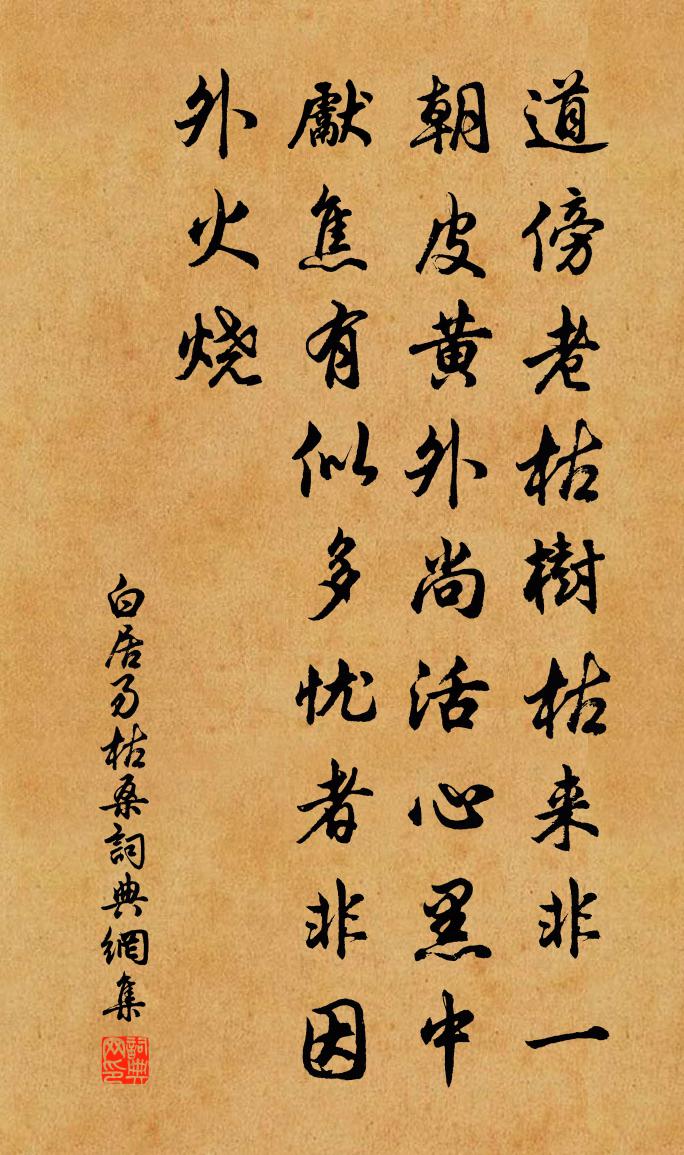 道傍老枯樹枯来非一
朝皮黄外尚活心黑中
獻焦有似多忧者非因
外火烧
白居易枯桑詞典網集
詞典
网印